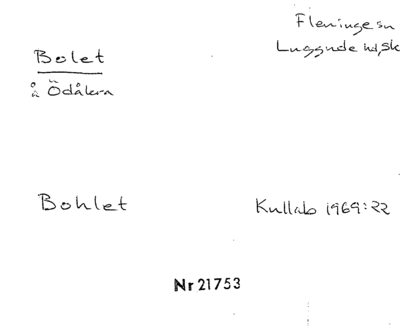 Fleninge sn
Luggude hd, Sk
Bolet
å Ödåkra
Bohlet
Kullab 1969:22
Nr 21753